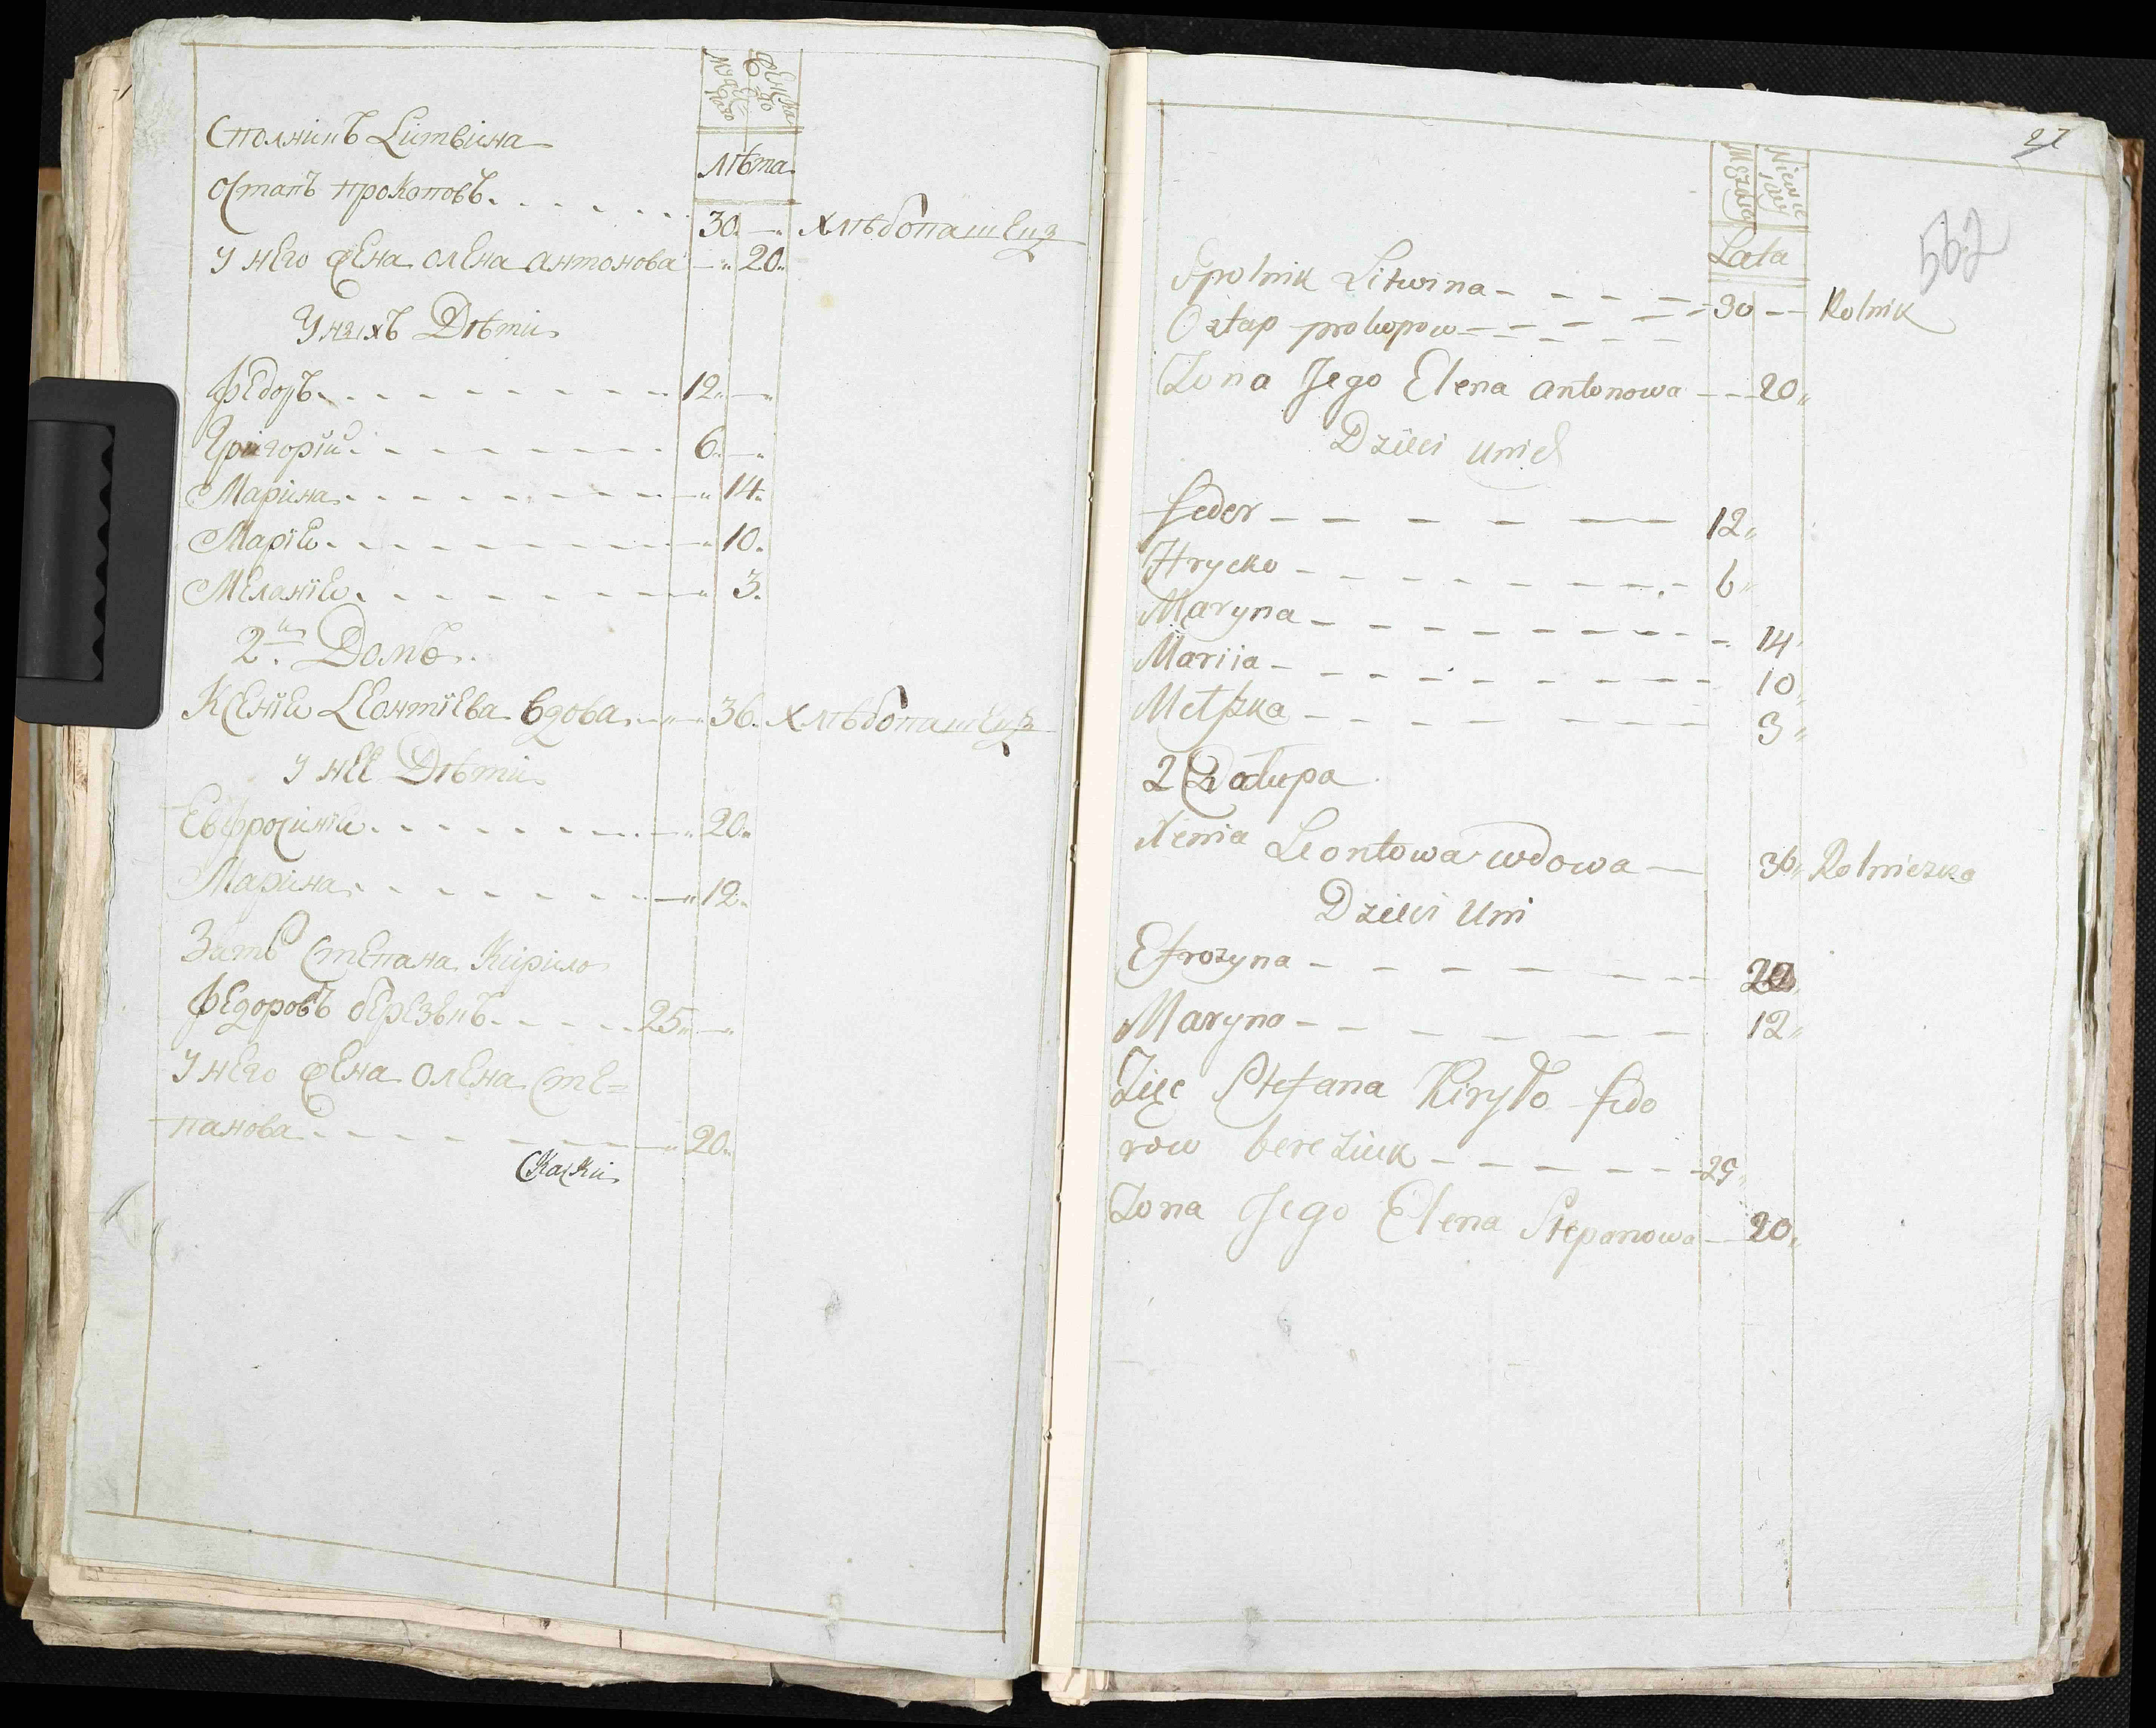 Мужеска полу
Женска
Лѣта
Сполникъ Литвина
Остапъ прокоповъ 30 — хлѣбопашецъ
У него жена олена антонова — 20
У нихъ Дѣти
федоръ 12 —
Григорий 6 —
Марина — 14
Мария — 10
Мелания — 3
2й Домъ
Ксения Леонтиева вдова — 36 хлѣбопашецъ
У нее Дѣти
Евфросиния — 20
Марина — 12
Зять Степана Кирило
федоровъ березюкъ 25 —
У него жена олена сте=
панова — 20
Скаски
27
562
Męzkiey
Niewieściey
Lata
Spolnik Litwina
Ostap prokopow 30 — Rolnik
Zona Jego Elena antonowa — 20
Dzieci unich
feder 12
Hrycko 6
Maryna 14
Mariia 10
3
2 Chałupa
Xenia Leontowa wdowa — 36 Rolniczka
Dzieci Uni
Efrozyna 20
Maryna 12
Zięc Stefana Kiryło fedo
row bereziuk 25
Zona Jego Elena Stepanowa — 20